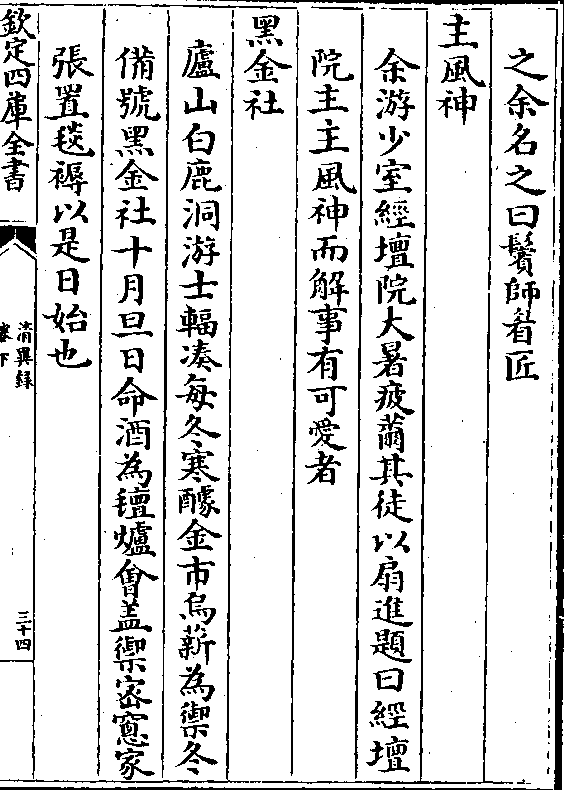 之余名之曰鬢師眉匠
主風神
余游少室經壇院大暑疲薾其徒以扇進題曰經壇
院主主風神而解事有可愛者
黑金社
廬山白鹿洞游士輻湊每冬寒醵金市烏薪為禦冬
備號黑金社十月旦日命酒為氊爐㑹盖禦宻窓家
張置毯褥以是日始也
欽定四庫全書
清異録
卷下
三十四